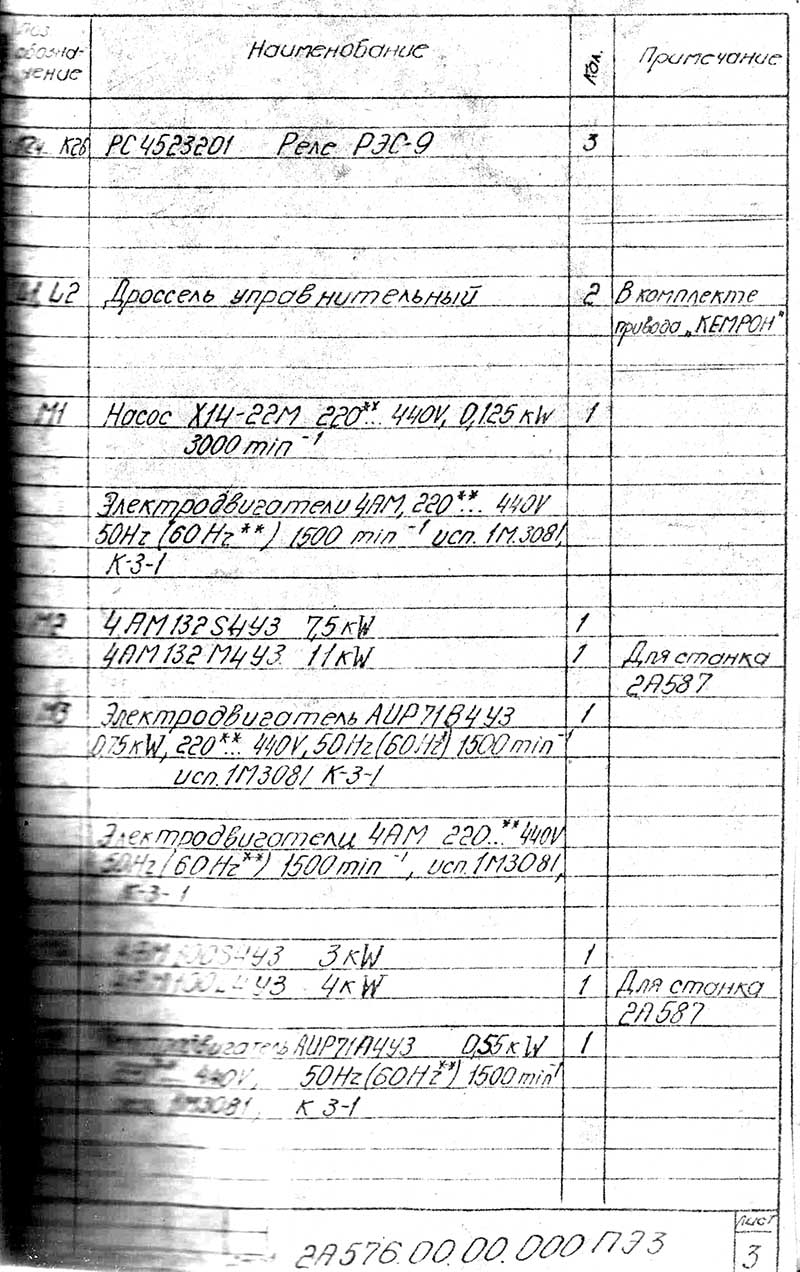 Наименование Кол. Примечание
чение
К26 РС4523201 Реле РЭС-9 3
L2 Дроссель управнительный 2 В комплекте
привода „КЕМРОН"
М1 Насос Х14-22М 220**... 440V, 0,125 kW 1
3000 min⁻¹
Электродвигатели 4АМ, 220**... 440V
50Hz (60Hz**) 1500 min⁻¹ исп. 1М.3081,
К-3-1
М2 4АМ132S4У3 7,5 kW 1
4АМ132М4У3 11 kW 1 Для станка
2А587
М3 Электродвигатель АИР71В4У3 1
0,75 kW, 220**... 440V, 50Hz (60Hz*) 1500 min⁻¹
исп. 1М3081 К-3-1
Электродвигатели 4АМ 220...**440V
50Hz (60Hz**) 1500 min⁻¹, исп. 1М3081,
К-3-1
4АМ100S4У3 3 kW 1
4АМ100L4У3 4 kW 1 Для станка
2А587
Электродвигатель АИР71А4У3 0,55 kW 1
440V, 50Hz (60Hz**) 1500 min⁻¹
1М3081, К 3-1
2А576.00.00.000 ПЭ3
Лист
3